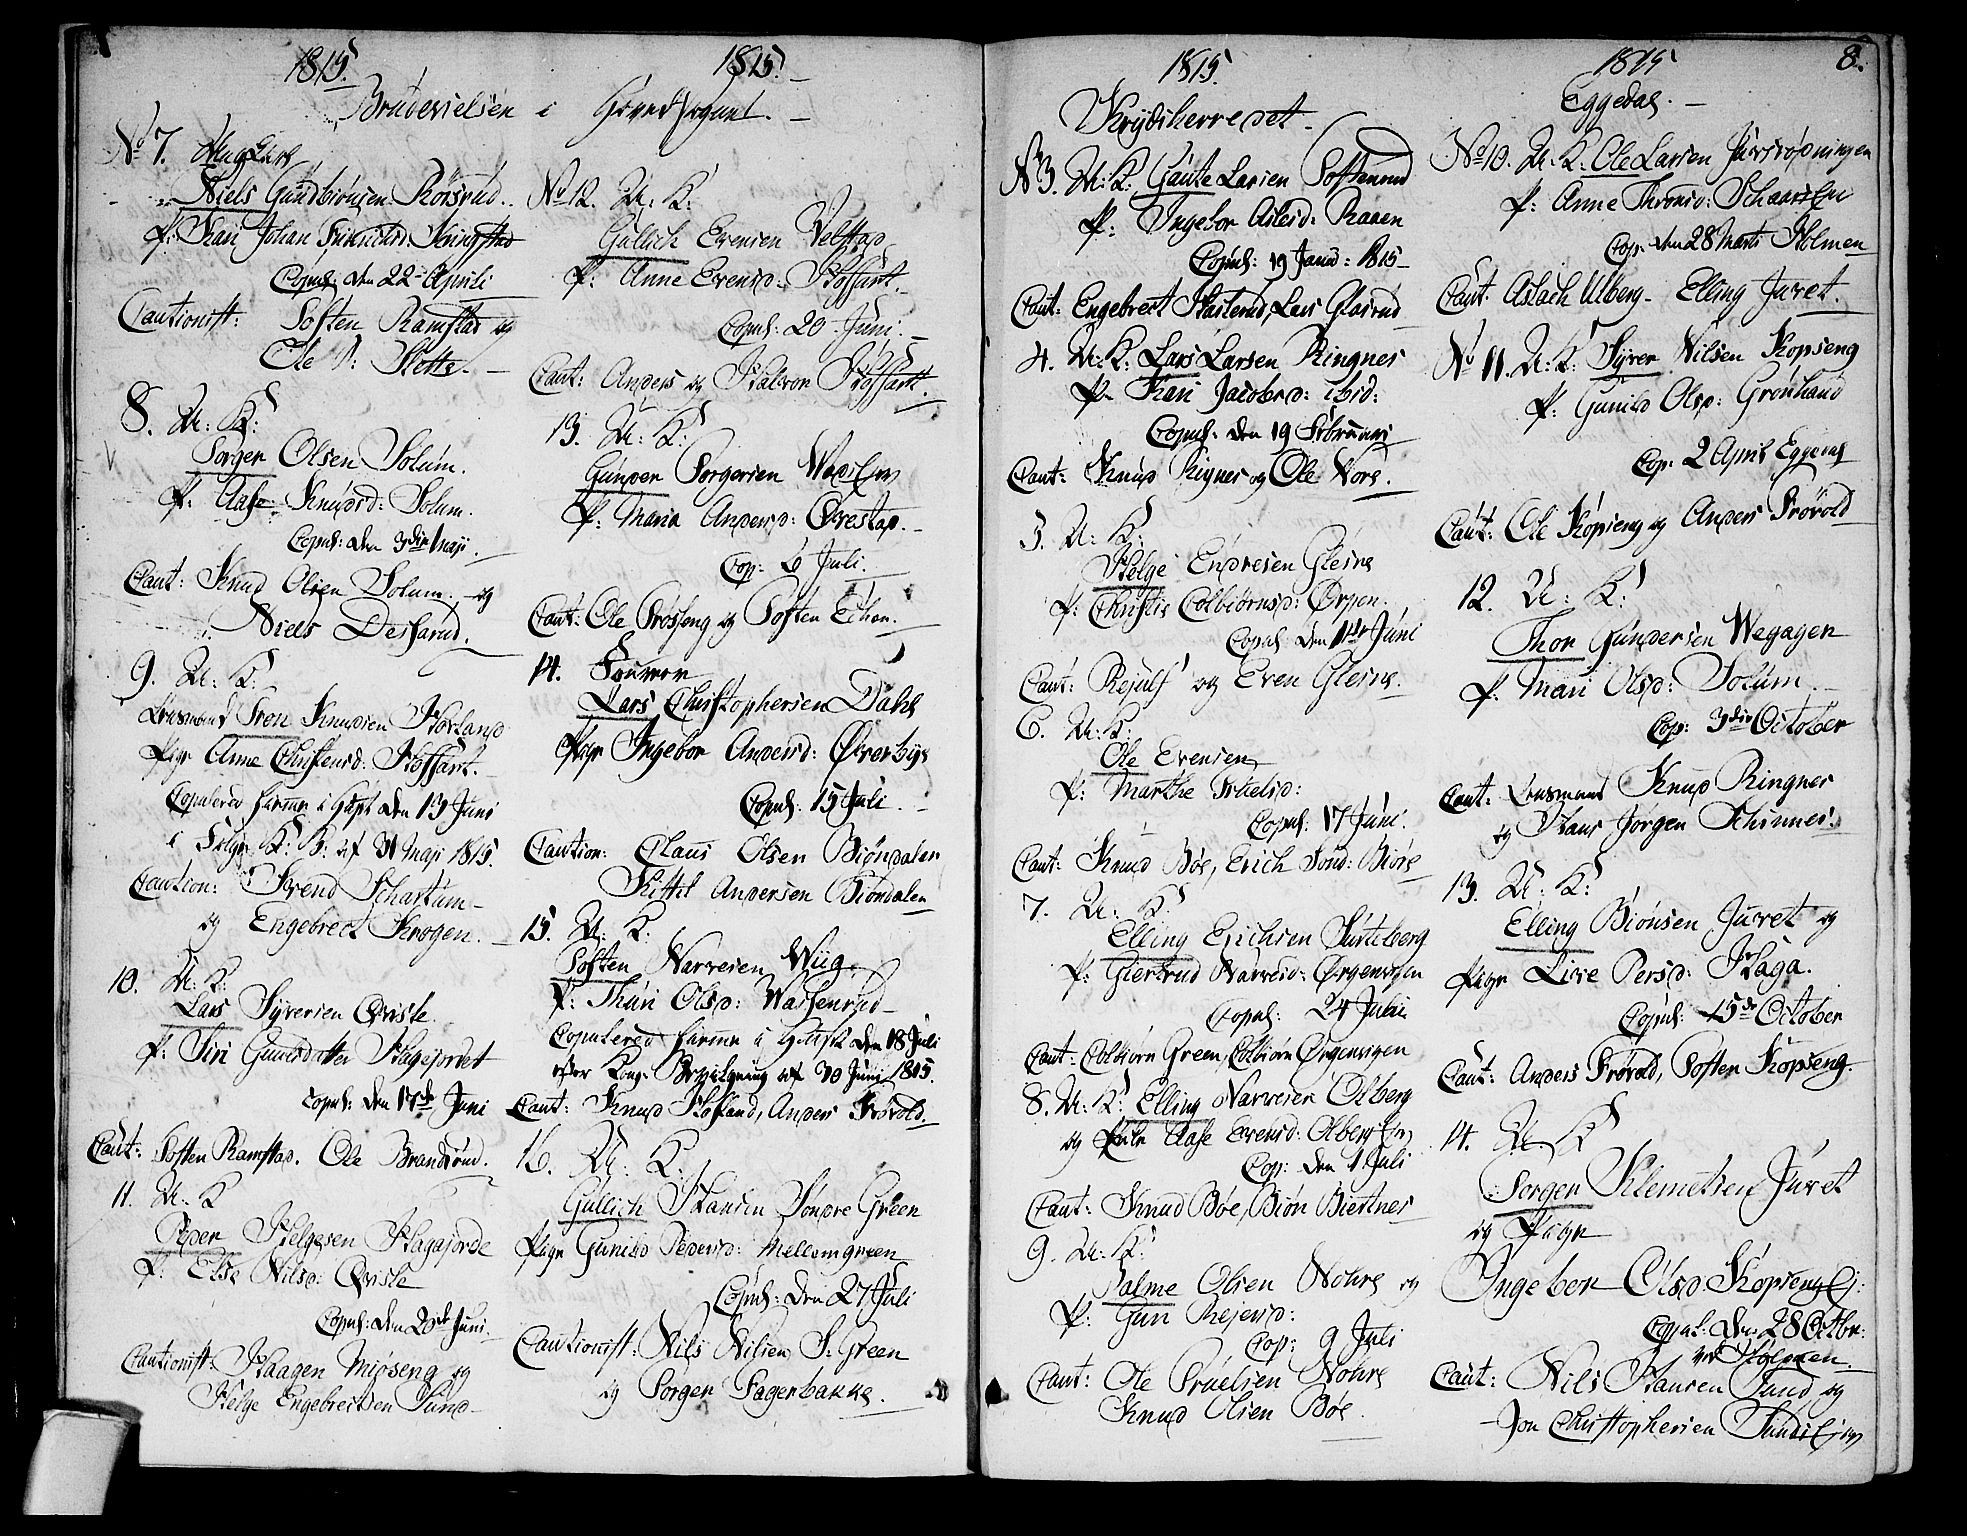 1815.
1815.
Brudevielsen i Hovedsognet.
No 7. Ung Karl
Niels Gundbiørnsen Rørsrud.
P: Kari Johan Hinrichsd: Kringstad
Copul: den 22 Aprili
Cautionist: Tosten Ramstad og
Ole Slette.
8. U: K:
Torger Olsen Solum.
P: Aase Knudsd: Solum.
Copul: den 3die Maji.
Caut: Knud Olsen Solum og
Niels Dessarud.
9. U: K:
Lensmand Iver Knudsen Hovland
Pige Anne Christensd: Hoffart.
Copulered hiemme i Huset den 13 Juni
i Følge K: B: af Maji 1815.
Caution: Svend Schartum
og Engebrect Krogen.
10. U: K:
Lars Syversen Qviste
P: Siri Gunilsdatter Hagejordet
Copul: den 17de Juni
Caut: Tosten Ramstad. Ole Brandrud.
11. U: K
Peder Helgesen Hagajorde
P: Else Nilsd: Qviste
Copul: den 20de Juni.
Cautionist: Haagen Miøseng og
Helge Engebrectsen Sund
No 12. U: K:
Gullich Evensen Velstad
P: Anne Evensd: Hoffart.
Copul: 20 Juni.
Caut: Anders og Halvor Hoffart.
13. U: K:
Gunder Torgersen
P: Maria Andersd: Øvestad.
Cop: 6 Juli.
Caut: Ole Frøsseng og Tosten Echon.
14.
Lars Christophersen Dahl
Pige Ingebor Andersd: Øverbye
Copul: 15 Juli.
Caution: Claus Olsen Biøndalen
Kittil Andersen Biøndalen
15. U: K:
Tosten Narvesen Wiig.
P: Thuri Olsd:
Copulered hiemme i Huset den 18 Juli
efter Kong: Bevilgning af 30 Juni 1815.
Caut: Knud Hofland, Anders Frøvold.
16. U: K:
Gullich Hansen Søndre Green
Pige Gunild Pedersd: Mellemgreen
Copul: den 27 Juli
Cautionist: Nils Nilsen S: Green
og Torger Fagerbakke.
1815.
Krydsherredet.
No 3. U: K: Gaute Larsen Tostenrud
P: Ingebor Aslesd: Raaen
Copul: 19 Janu: 1815
Caut: Engebrect Skaterud, Lars Glasrud
4. U: K: Lars Larsen Ringnes
P: Kari Jacobsd: ibid:
Copul: den 19 Februari
Caut: Knud Rignes og Ole Nore.
5. U: K:
Helge Endresen Glesne
P: Christie Colbiørnsd: Ørpen.
Copul den 11te Juni
Caut: Rejulf og Even Glesne.
6. U: K:
Ole Evensen
P: Marthe
Copul: 17 Juni.
Caut: Knud Bøe, Erich Sønd: Biøre
7. U: K:
Elling Erichsen Surteberg
P: Giertrud Narvesd: Ørgenvigen
Copul: 24 Juni
Caut: Colbiørn Green, Colbiørn Ørgenvigen
8. U: K: Elling Narvesen Olberg
og Pike Aase Evensd: Olberg Eje
Cop: den 1 Juli
Caut: Knud Bøe, Biørn Biertnes
9. U: K:
Palme Olsen Nohre og
P: Gun Rejersd:
Cop: 9 Juli
Caut: Ole Truelsen Nohre
Knud Olsen Bøe.
1815
8.
Eggedal.
No 10. U: K: Ole Larsen Juvsrøpningen
P: Anne Thronsd:
Cop: den 28 Marts Holmen
Caut: Aslach Ulberg Elling Juvet.
No 11. U: K: Syver Nilsen Kopseng
P: Gunild Olsd: Grønhaud
Cop: 2 April Eggedal
Caut: Ole Kopseng og Anders Frøvold
12. U: K:
Thor Gundersen Wegagen
P: Mari Olsd: Solum.
Cop: 3die October
Caut: Lensmand Knud Ringnes
og Hans Jørgen Schinnes.
13. U: K:
Elling Biønsen Juvet og
Pige Live Persd: Haga.
Copul: 15de October
Caut: Anders Frøvold, Tosten Kopseng.
14. U: K
Torger Klemetsen Juvet
og Pige
Ingebor Olsd: Kopseng Ej:
Copul: den 28 Octbr:
ved Holmen.
Caut: Nils Hansen Lund og
Jon Christophersen